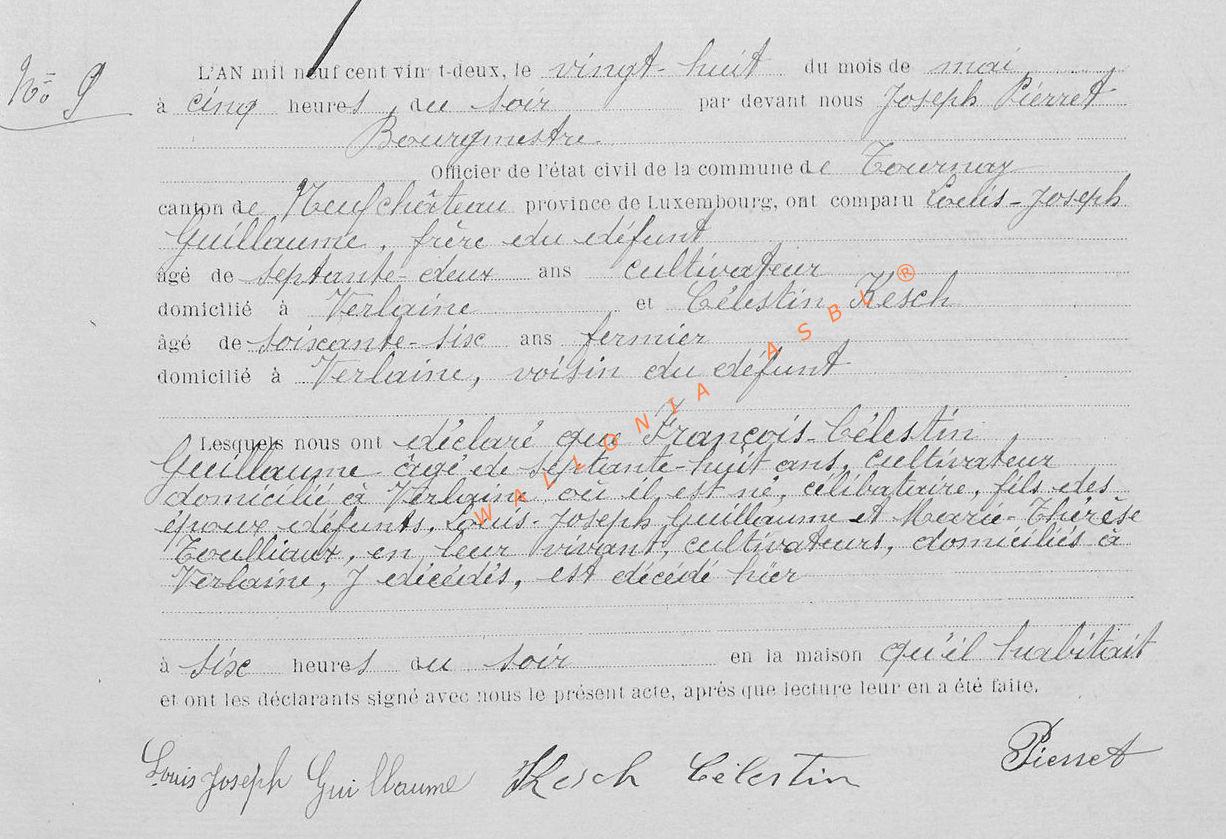 No 9
L'AN mil neuf cent vingt-deux, le vingt-huit du mois de mai
à cinq heures, du soir par devant nous Joseph Pierret
Bourgmestre
Officier de l'état civil de la commune de Tournay
canton de Neufchâteau province de Luxembourg, ont comparu Louis-Joseph
Guillaume, frère du défunt
âgé de septante-deux ans cultivateur
domicilié à Verlaine et Célestin Kesch
âgé de soixante-six ans fermier
domicilié à Verlaine, voisin du défunt
Lesquels nous ont déclaré que François-Célestin
Guillaume âgé de septante-huit ans, cultivateur
domicilié à Verlaine où il est né, célibataire, fils des
époux défunts, Louis-Joseph Guillaume et Marie-Thérèse
Toulliaux, en leur vivant, cultivateurs, domiciliés à
Verlaine, y décédés, est décédé hier
à six heures du soir en la maison qu'il habitait
et ont les déclarants signé avec nous le présent acte, après que lecture leur en a été faite.
Louis Joseph Guillaume Kesch Célestin Pierret
WALLONIA ASBL ®